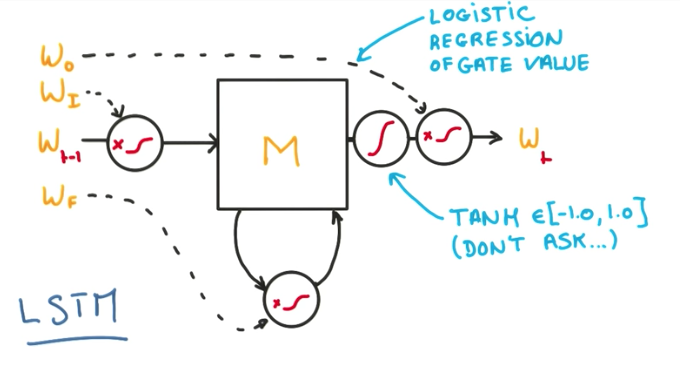 LOGISTIC
REGRESSION
OF GATE VALUE
W_O
W_I
W_t-1
x
M
x
W_t
W_F
TANH ∈[-1.0, 1.0]
(DON'T ASK...)
x
LSTM